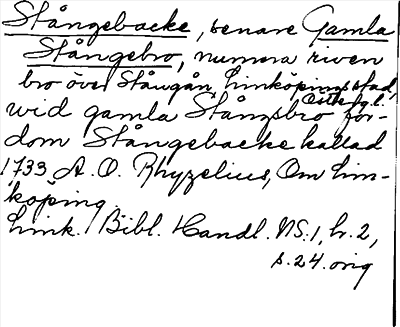 Stångebacke, senare Gamla
Stångebro, numera riven
bro över Stångån, Linköpings stad,
Östergl.
wid gamla Stångsbro för-
dom Stångebacke kallad
1733 A. O. Rhyzelius, Om Lin-
köping.
Link. Bibl. Handl. NS:1, h. 2,
s. 24. orig